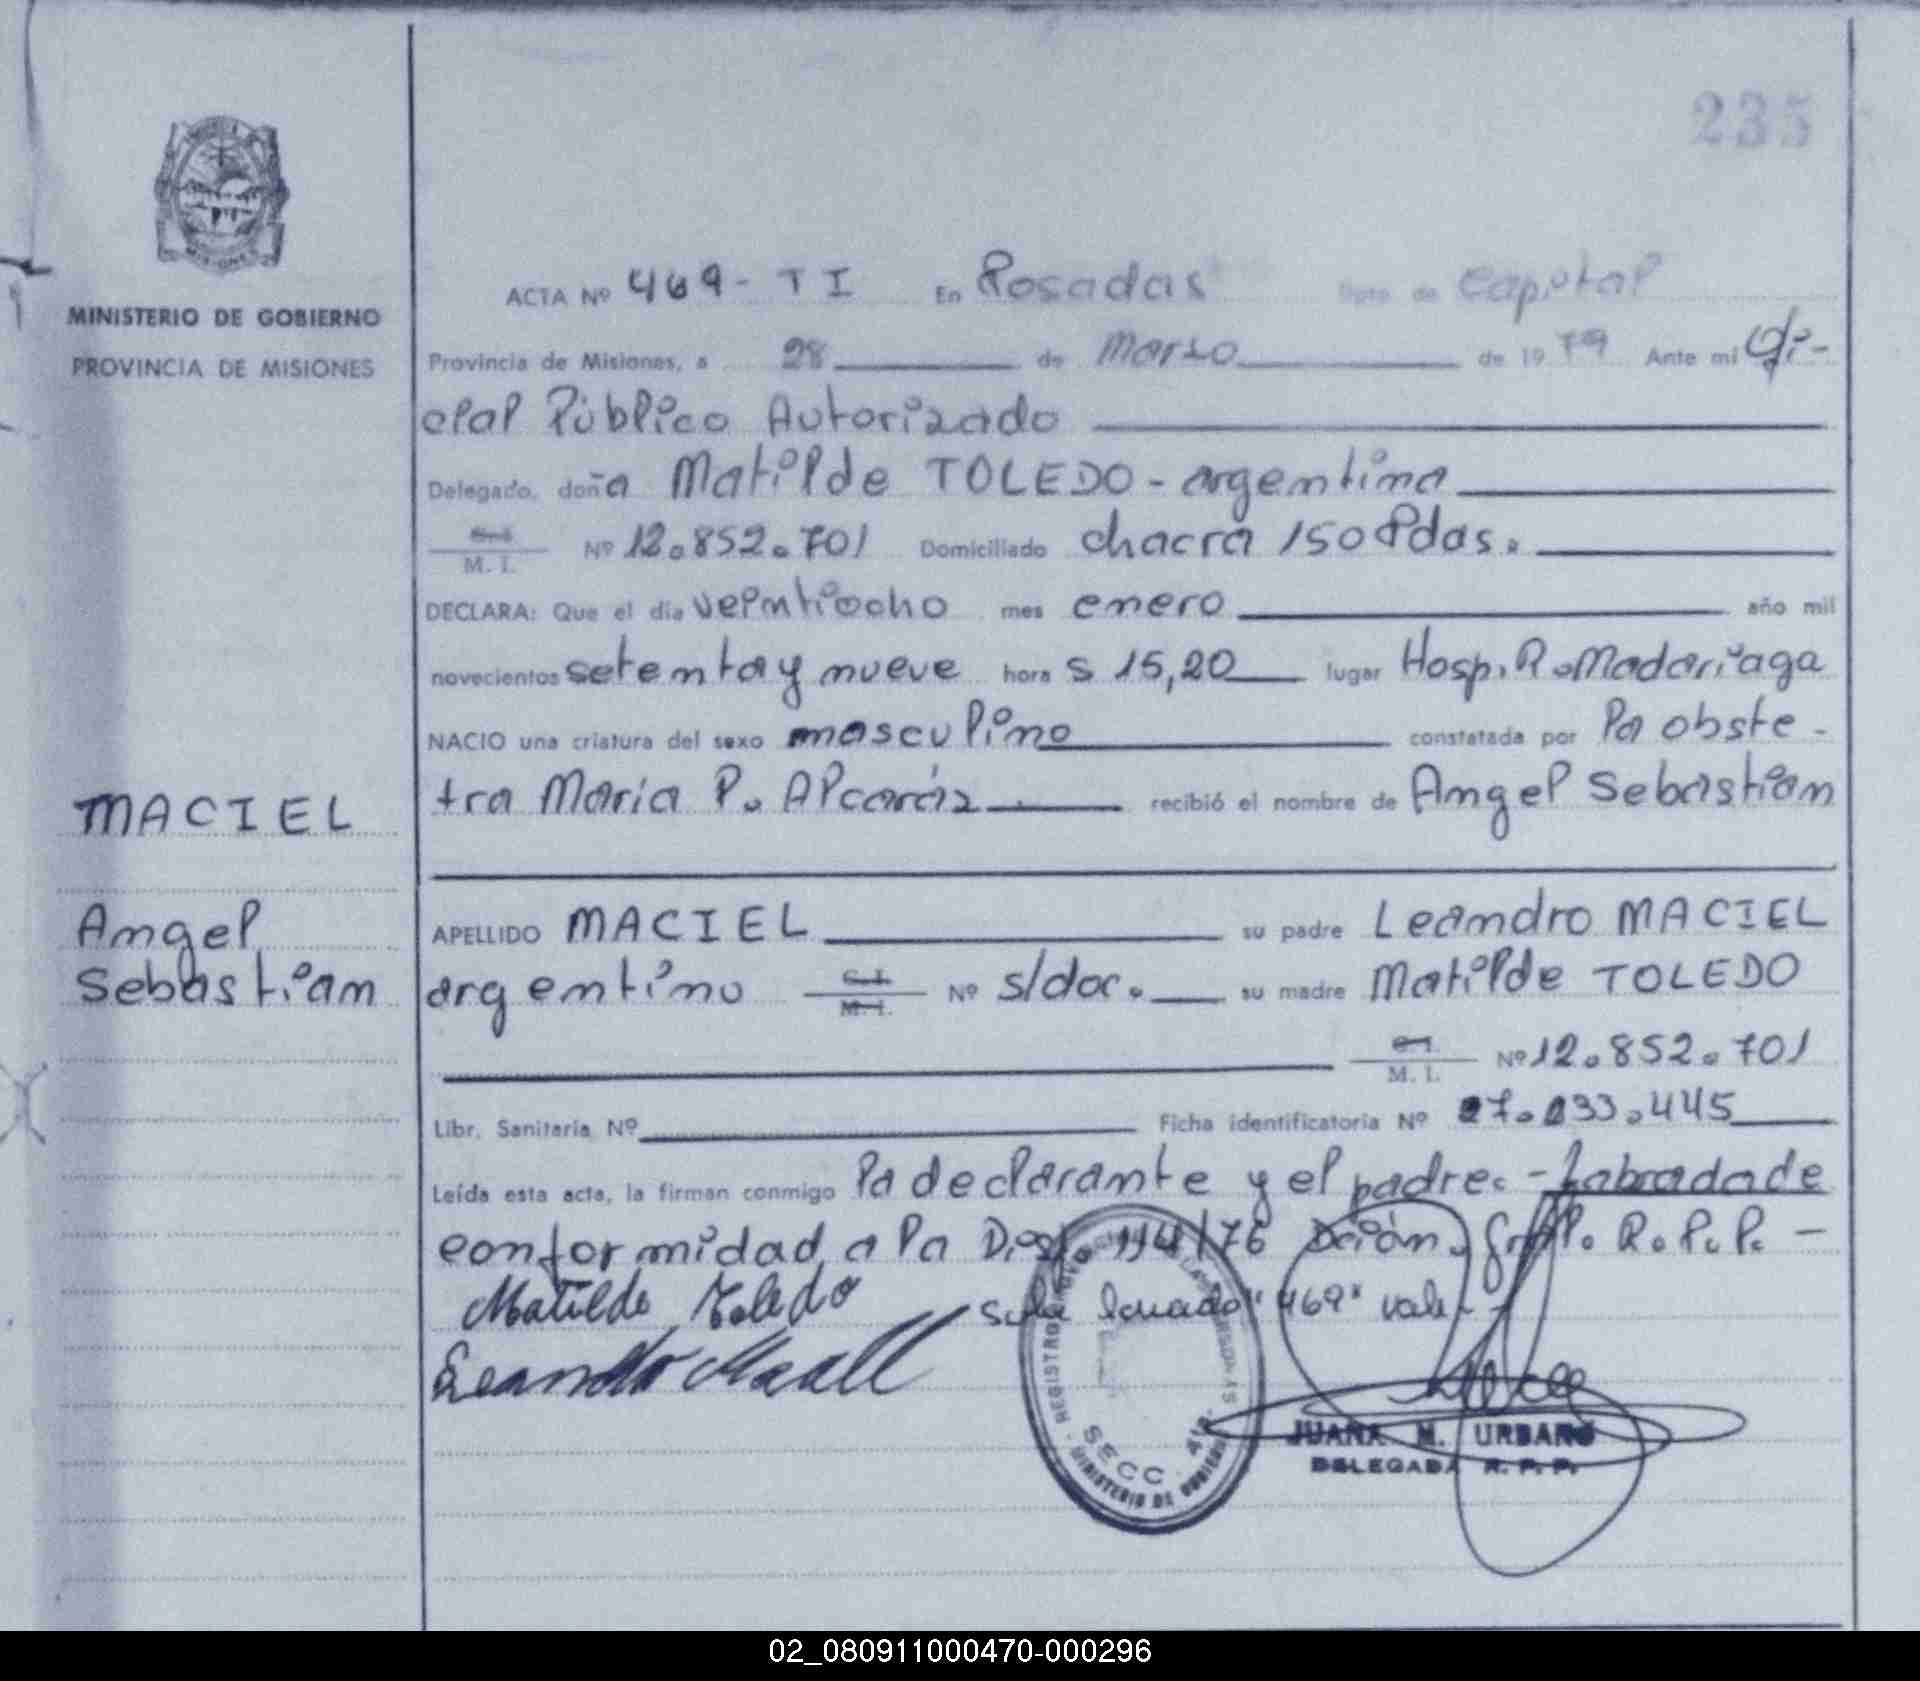 235
MISIONES
MINISTERIO DE GOBIERNO
PROVINCIA DE MISIONES
MACIEL
Angel
Sebastian
ACTA Nº 469 - T I En Posadas Dpto de Capital
Provincia de Misiones, a 28 de Marzo de 1979 Ante mi Ofi-
cial Público Autorizado
Delegado, doña Matilde TOLEDO - argentina
C.I. M. I. Nº 12.852.701 Domiciliado chacra 150 Pdas.
DECLARA: Que el día veintiocho mes enero año mil
novecientos setenta y nueve hora s 15,20 lugar Hosp. R. Madariaga
NACIO una criatura del sexo masculino constatada por la obste-
tra Maria P. Alcaráz recibió el nombre de Angel Sebastian
APELLIDO MACIEL su padre Leandro MACIEL
argentino C.I. M. I. Nº s/doc. su madre Matilde TOLEDO
C.I. M. I. Nº 12.852.701
Libr. Sanitaria Nº Ficha identificatoria Nº 27.133.445
Leída esta acta, la firman conmigo la declarante y el padre. - Labrada de
conformidad a la Disp. 114/76 Dción. Gral. R. P. P. -
Matilde Toledo "469" vale
Leandro
REGISTRO
SECC
MINISTERIO DE GOBIERNO
JUANA M. URBANO
DELEGADA R. P. P.
02_080911000470-000296